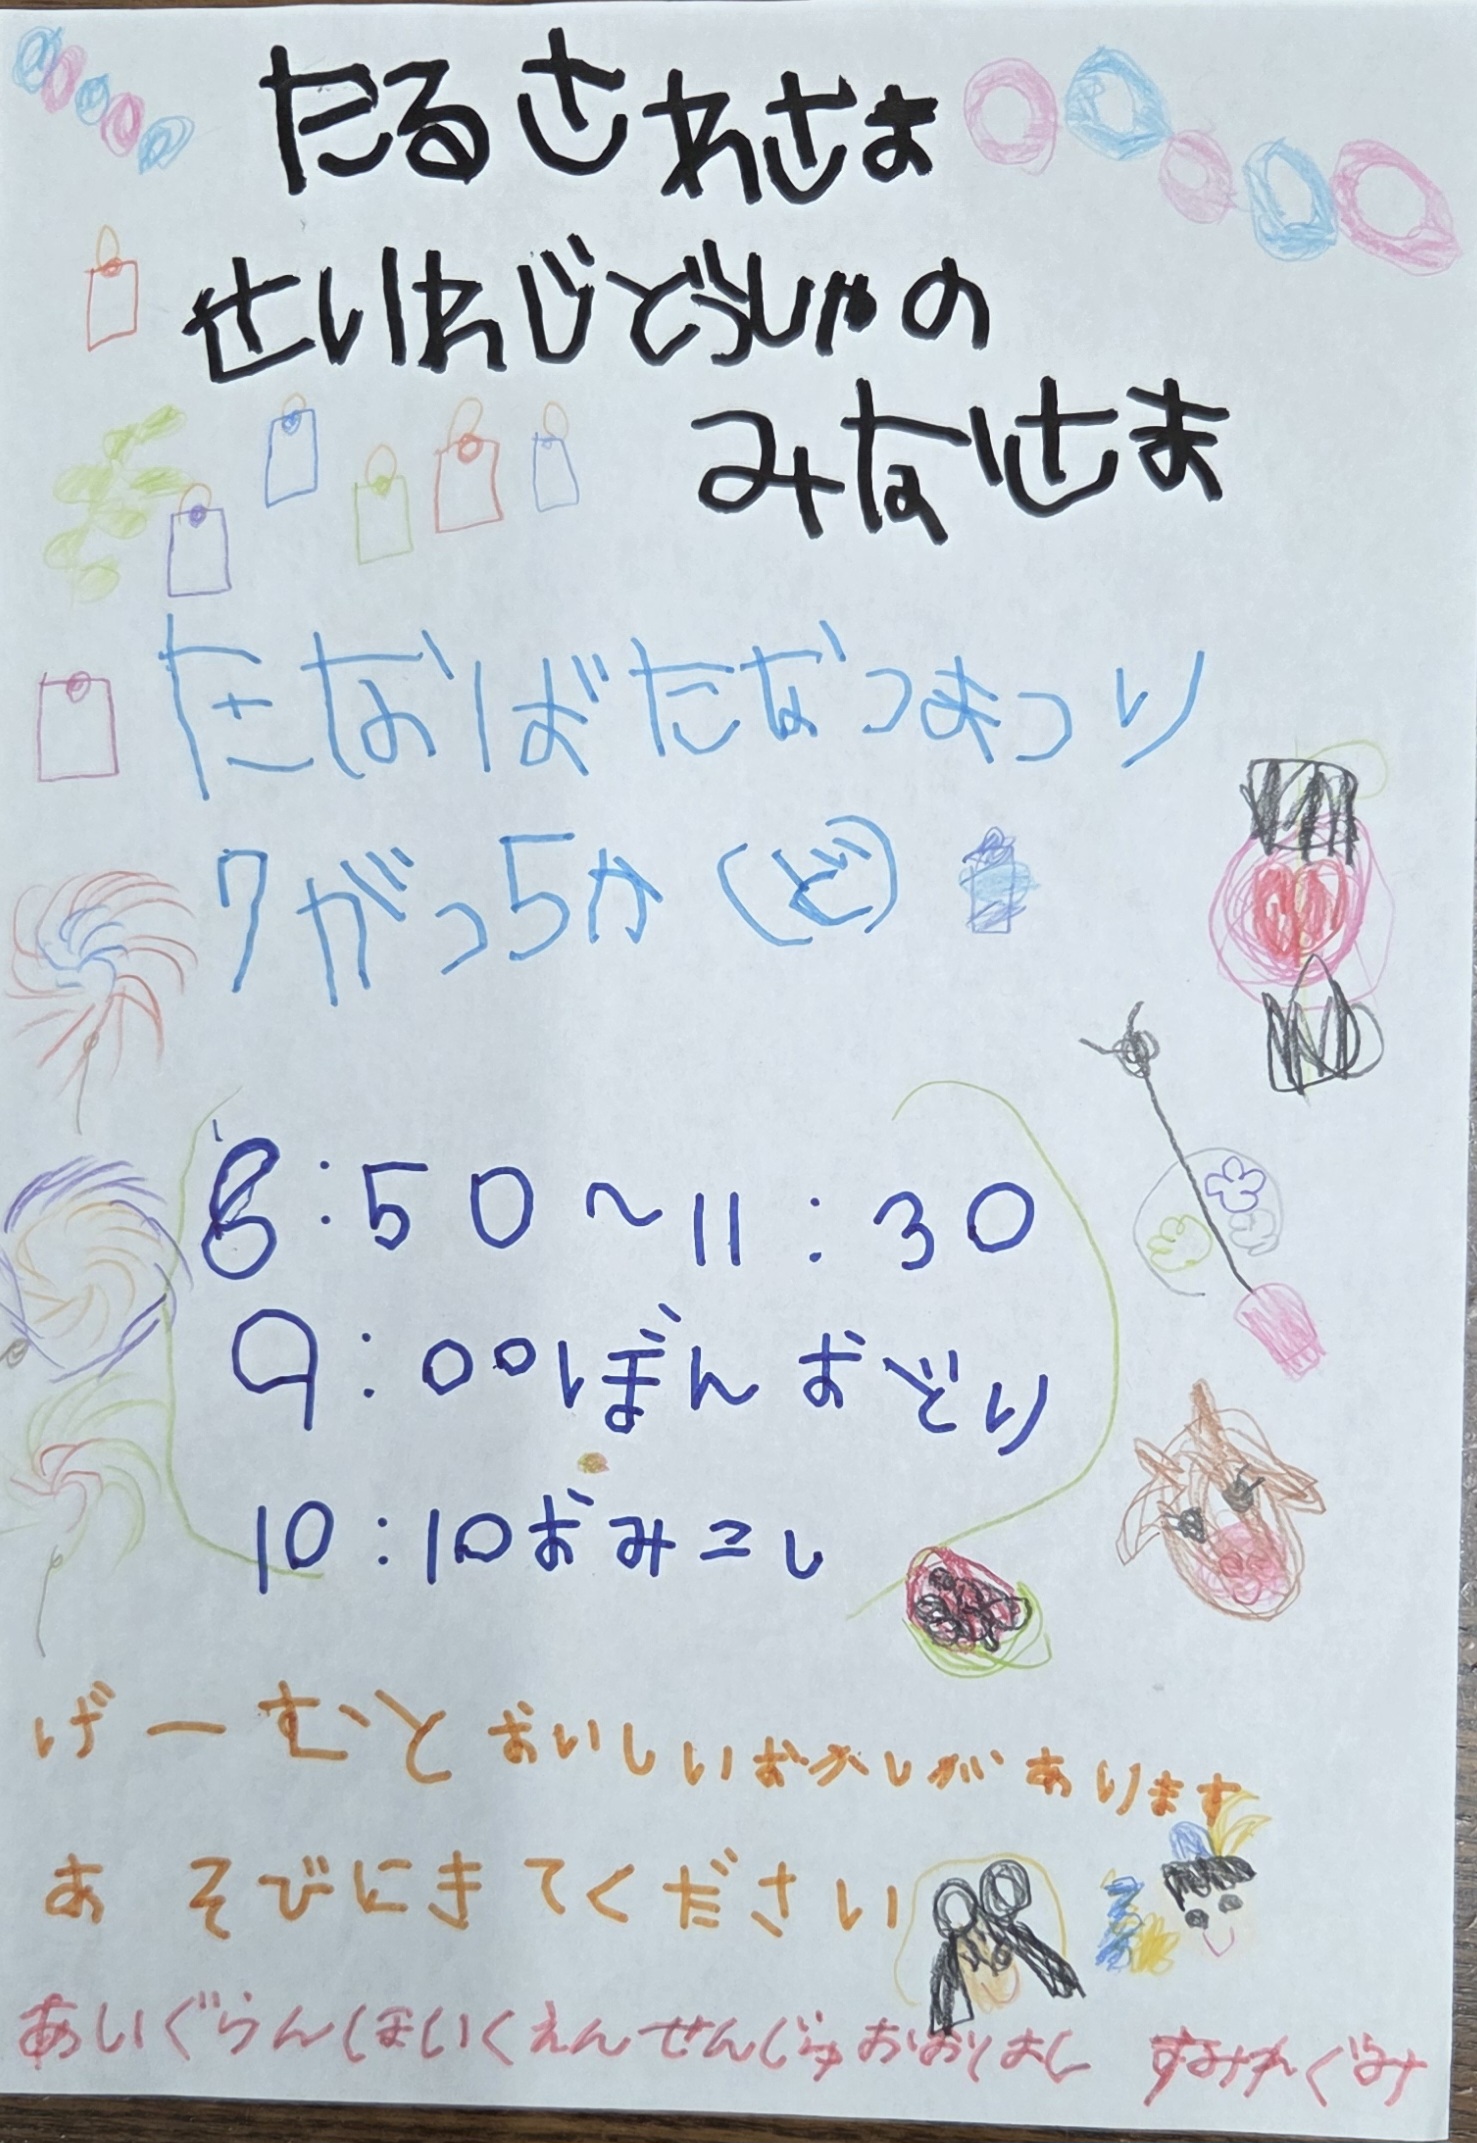 たるさわさま
せいわじどうしゃの
みなさま
たなばたなつまつり
7がつ5か(ど)
8:50~11:30
9:00ぼんおどり
10:10おみこし
げーむとおいしいおかしがあります
あそびにきてください
あいぐらんほいくえんせんじゅおおはし すみれぐみ